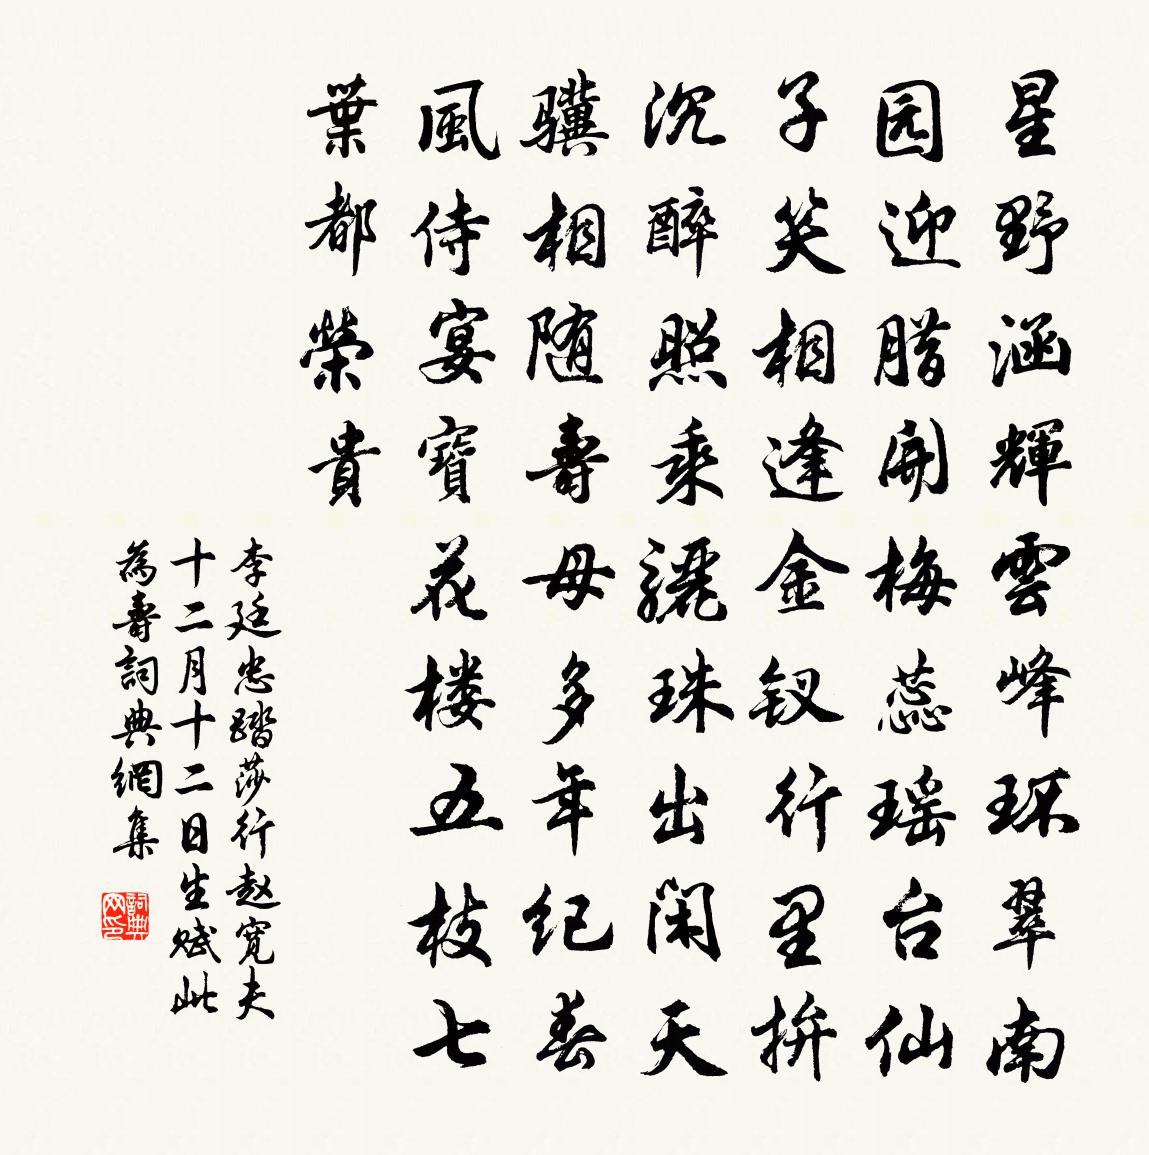 星野涵輝雲峰环翠南
园迎腊開梅蕊瑶台仙
子笑相逢金钗行里拚
沉醉照乘骊珠出闲天
骥相随壽母多年纪春
風侍宴寶花楼五枝七
葉都榮貴
李廷忠踏莎行赵寬夫
十二月十二日生赋此
為壽詞典網集
詞典网印